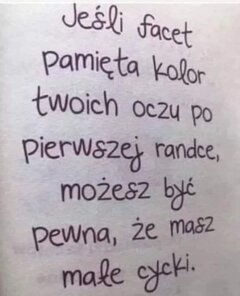 Jeśli facet
pamięta kolor
twoich oczu po
pierwszej randce,
możesz być
pewna, że masz
małe cycki.